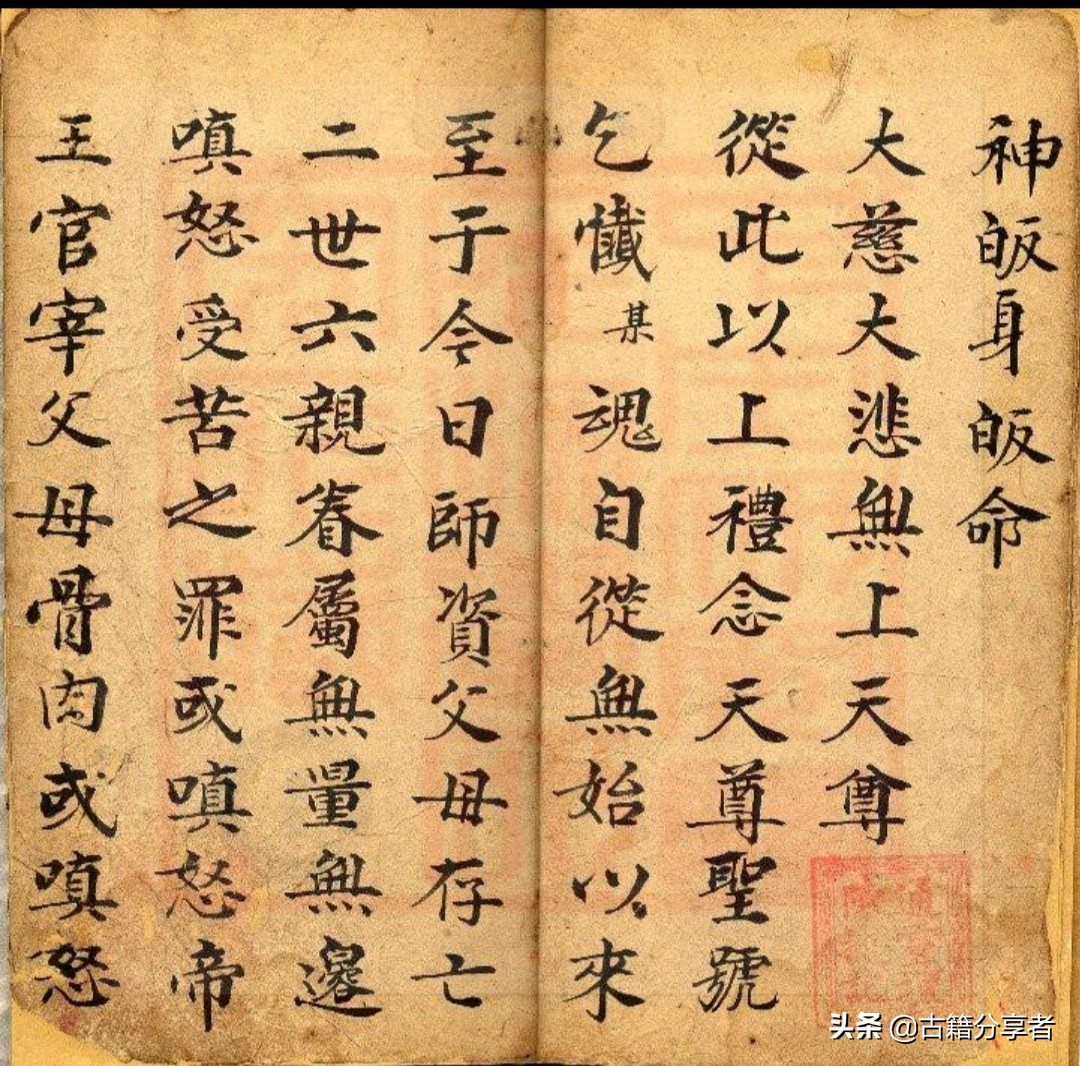 神皈身皈命
大慈大悲無上天尊
從此以上禮念天尊聖號
乞懺某魂自從無始以來
至于今日師資父母存亡
二世六親眷屬無量無邊
嗔怒受苦之罪或嗔怒帝
王官宰父母骨肉或嗔怒
头条 @古籍分享者